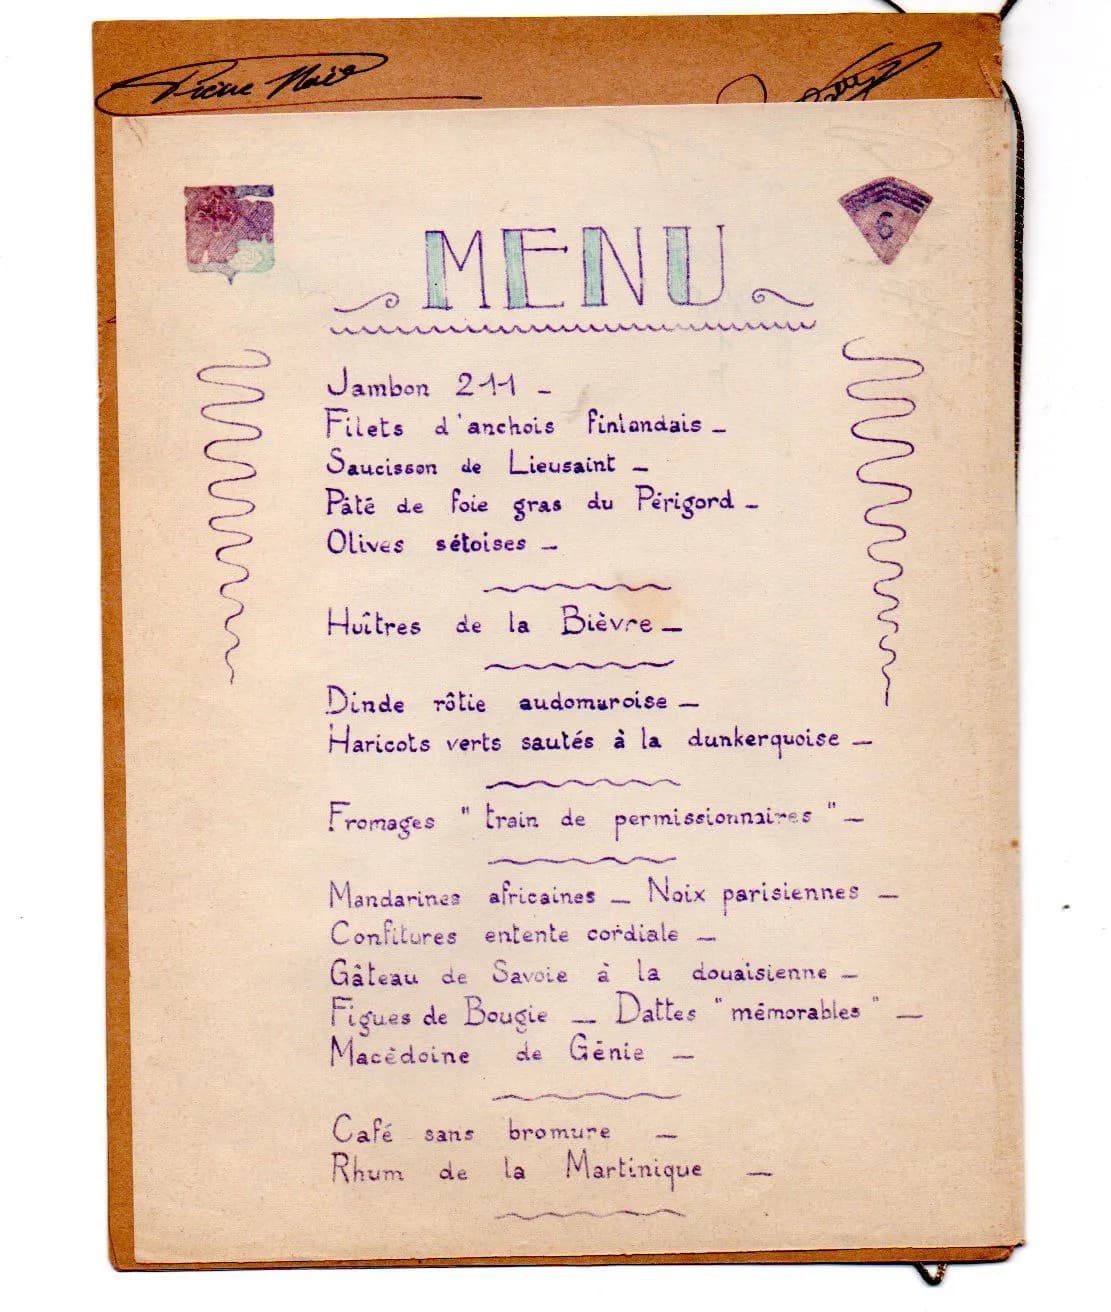 Pierre Noix
6
MENU
Jambon 211 _
Filets d'anchois finlandais _
Saucisson de Lieusaint _
Pâté de foie gras du Périgord _
Olives sétoises _
Huîtres de la Bièvre _
Dinde rôtie audomaroise _
Haricots verts sautés à la dunkerquoise _
Fromages " train de permissionnaires " _
Mandarines africaines _ Noix parisiennes _
Confitures entente cordiale _
Gâteau de Savoie à la douaisienne _
Figues de Bougie _ Dattes " mémorables " _
Macédoine de Génie _
Café sans bromure _
Rhum de la Martinique _